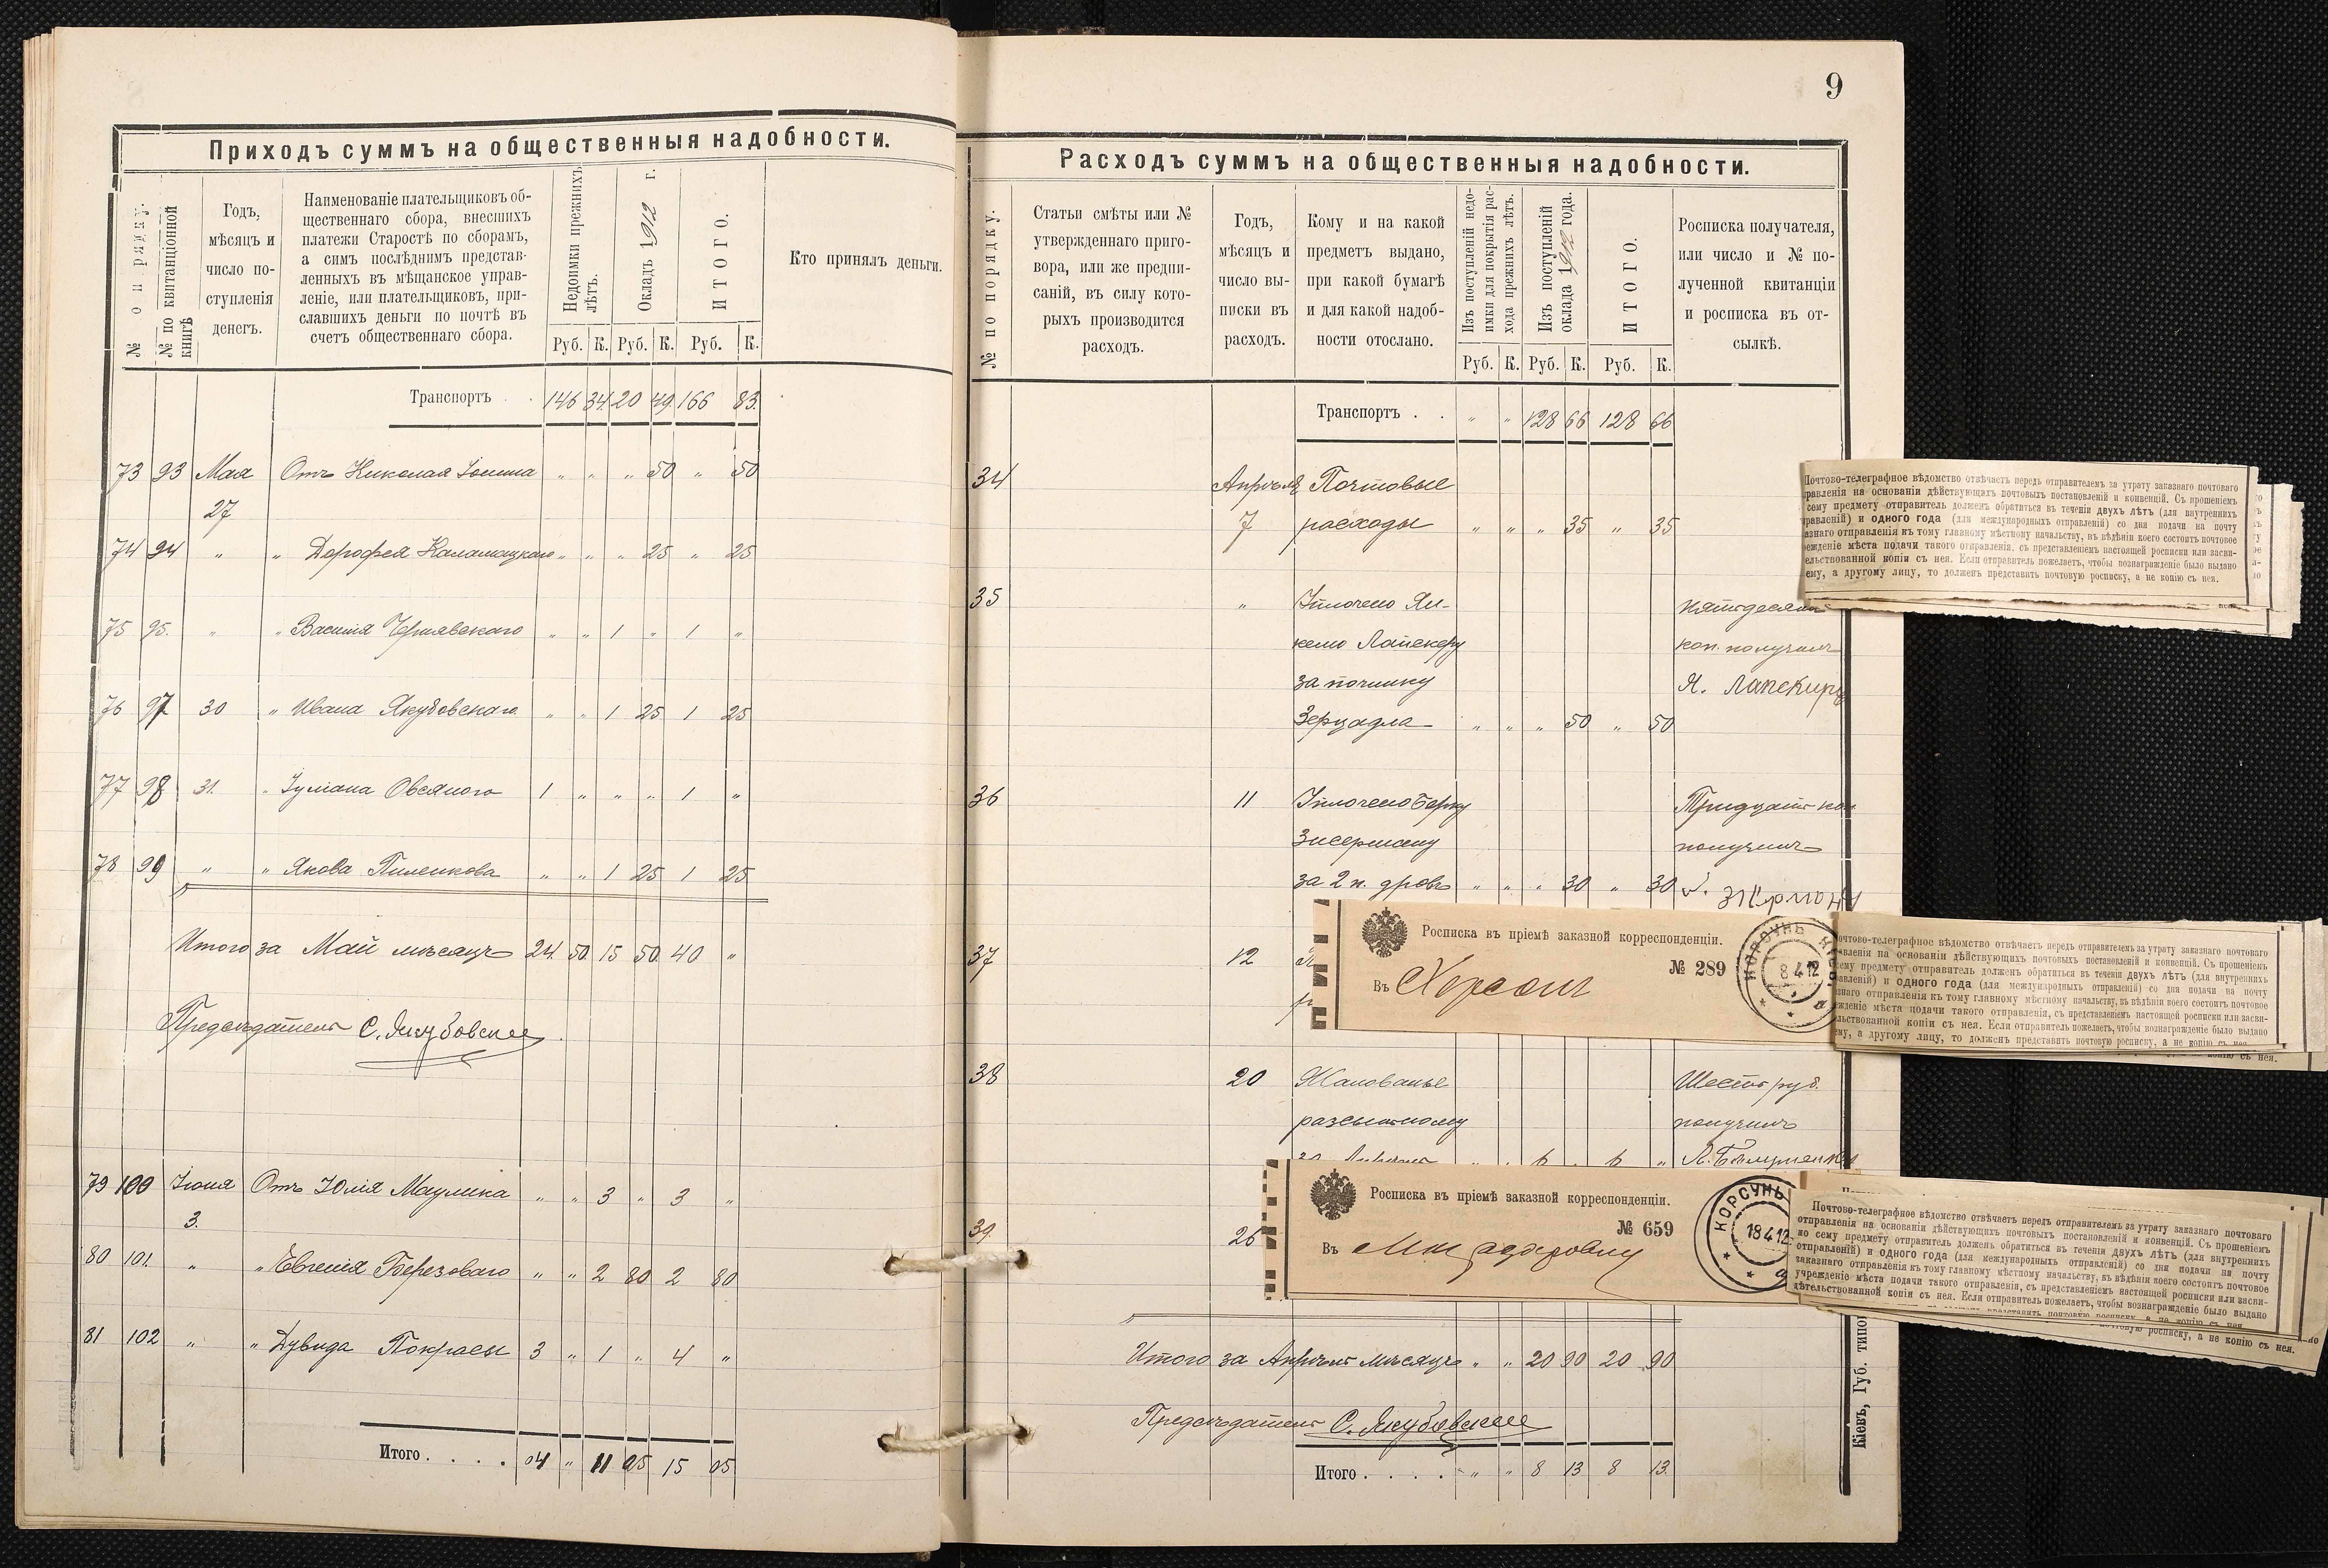 Приходъ суммъ на общественныя надобности.
№ о п рядку.
№ по квитанціонной книгѣ
Годъ,
мѣсяцъ и
число по-
ступленія
денегъ.
Наименованіе плательщиковъ об-
щественнаго сбора, внесшихъ
платежи Старостѣ по сборамъ,
а симъ послѣднимъ представ-
ленныхъ въ мѣщанское управ-
леніе, или плательщиковъ, при-
славшихъ деньги по почтѣ въ
счетъ общественнаго сбора.
Недоимки прежнихъ
лѣтъ.
Окладъ 1912 г.
ИТОГО.
Кто принялъ деньги.
Руб. К. Руб. К. Руб. К.
Транспортъ . . 146 34 20 49 166 83.
73 93 Мая Отъ Николая Іонина „ „ „ 50 „ 50
27
74 94 „ „ Дорофея „ „ „ 25 „ 25
75 95. „ „ Василія Чернявскаго „ „ 1 „ 1 „
76 97 30 „ Ивана Якубовскаго „ „ 1 25 1 25
77 98 31. „ Іуліана Овсяного 1 „ „ „ 1 „
78 99 „ „ Якова Пиленкова „ „ 1 25 1 25
Итого за Май мѣсяцъ 24 50 15 50 40 „
Предсѣдатель С. Якубовскій
79 100 Іюня Отъ Юлія „ „ 3 „ 3 „
3.
80 101. „ „ Евгенія Березоваго „ „ 2 80 2 80
81 102 „ „ Дувида Покрасы 3 „ 1 „ 4 „
Итого . . . . 04 „ 11 05 15 05
9
Расходъ суммъ на общественныя надобности.
№ по порядку.
Статьи смѣты или №
утвержденнаго приго-
вора, или же предпи-
саній, въ силу кото-
рыхъ производится
расходъ.
Годъ,
мѣсяцъ и
число вы-
писки въ
расходъ.
Кому и на какой
предметъ выдано,
при какой бумагѣ
и для какой надоб-
ности отослано.
Изъ поступленій недо-
имки для покрытія рас-
хода прежнихъ лѣтъ.
Изъ поступленій
оклада 1912 года.
ИТОГО.
Росписка получателя,
или число и № по-
лученной квитанціи
и росписка въ от-
сылкѣ.
Руб. К. Руб. К. Руб. К.
Транспортъ . . „ „ 128 66 128 66
34 Апрѣля Почтовые
7 расходы „ „ „ 35 „ 35
35 „ Уплочено Ян-
келю Лапскеру
за починку
Зерцадла „ „ „ 50 „ 50
пятьдесятъ
коп. получилъ
Я. Лапскиръ
36 11 Уплочено Берку
Зисерману
за 2 п. дровъ „ „ „ 30 „ 30
Тридцать коп
получилъ
37 12
38 20 Жалованье
разсыльному
за Апрѣль „ „ 6 „ 6 „
Шесть руб.
получилъ
39. 26
Итого за Апрѣль мѣсяцъ „ „ 20 90 20 90
Предсѣдатель С. Якубовскій
Итого . . . . „ „ 8 13 8 13.
Кіевъ, Губ. типо
Почтово-телеграфное вѣдомство отвѣчаетъ передъ отправителемъ за утрату заказнаго почтоваго
равленія на основаніи дѣйствующихъ почтовыхъ постановленій и конвенцій. Съ прошеніемъ
сему предмету отправитель долженъ обратиться въ теченіи двухъ лѣтъ (для внутреннихъ
равленій) и одного года (для международныхъ отправленій) со дня подачи на почту
азнаго отправленія къ тому главному мѣстному начальству, въ вѣдѣніи коего состоитъ почтовое
еждeніе мѣста подачи такого отправленія, съ представленіемъ настоящей росписки или засви-
ельствованной копіи съ нея. Если отправитель пожелаетъ, чтобы вознагражденіе было выдано
ему, а другому лицу, то долженъ представить почтовую росписку, а не копію съ нея.
Росписка въ пріемѣ заказной корреспонденціи.
№ 289
Въ Херсонъ
КОРСУНЬ
8 4 12
очтово-телеграфное вѣдомство отвѣчаетъ передъ отправителемъ за утрату заказнаго почтоваго
авленія на основаніи дѣйствующихъ почтовыхъ постановленій и конвенцій. Съ прошеніемъ
сему предмету отправитель долженъ обратиться въ теченіи двухъ лѣтъ (для внутреннихъ
авленій) и одного года (для международныхъ отправленій) со дня подачи на почту
знаго отправленія къ тому главному мѣстному начальству, въ вѣдѣніи коего состоитъ почтовое
жденіе мѣста подачи такого отправленія, съ представленіемъ настоящей росписки или засви-
льствованной копіи съ нея. Если отправитель пожелаетъ, чтобы вознагражденіе было выдано
ему, а другому лицу, то долженъ представить почтовую росписку, а не копію съ нея
копію съ нея.
Росписка въ пріемѣ заказной корреспонденціи.
№ 659
Въ
КОРСУНЬ
18 4 12
Почтово-телеграфное вѣдомство отвѣчаетъ передъ отправителемъ за утрату заказнаго почтоваго
отправленія на основаніи дѣйствующихъ почтовыхъ постановленій и конвенцій. Съ прошеніемъ
по сему предмету отправитель долженъ обратиться въ теченіи двухъ лѣтъ (для внутреннихъ
отправленій) и одного года (для международныхъ отправленій) со дня подачи на почту
заказнаго отправленія къ тому главному мѣстному начальству, въ вѣдѣніи коего состоитъ почтовое
учрежденіе мѣста подачи такого отправленія, съ представленіемъ настоящей росписки или засви-
дѣтельствованной копіи съ нея. Если отправитель пожелаетъ, чтобы вознагражденіе было выдано
почтовую росписку, а не копію съ нея.